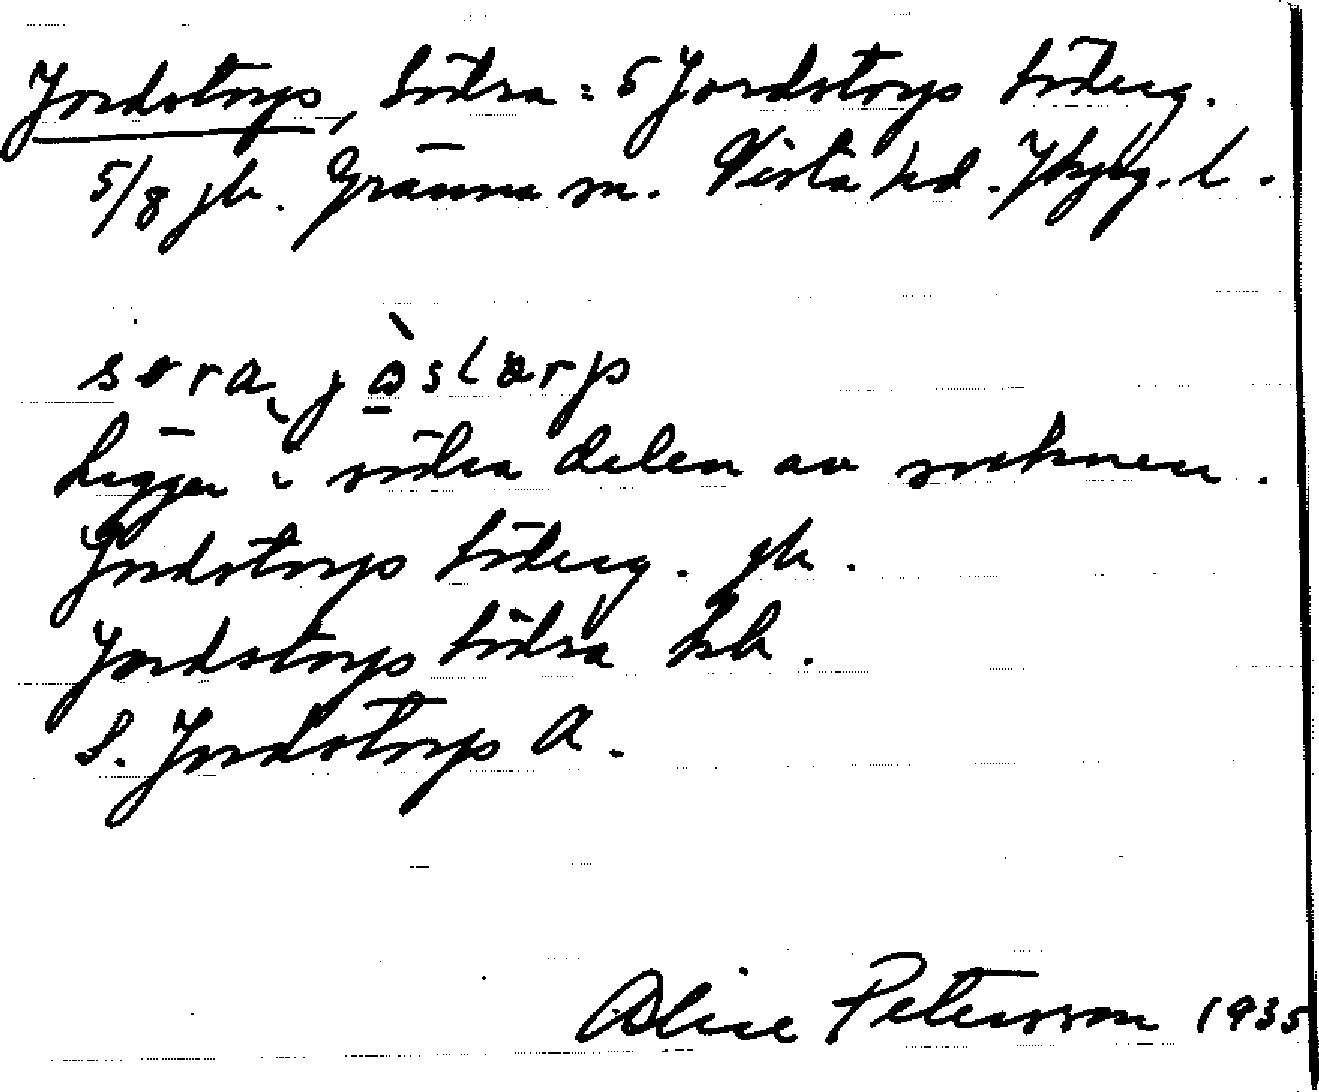 Jordstorps, Södra = 5 Jordstorps Söderg.
5/8 jb. Gränna sn. Vista hd. Jkpg. l.
søra jòstorp
Ligger i södra delen av socknen.
Jordstorps Söderg. jb.
Jordstorps Södra
S. Jordstorps A.
Alice Petersson 1935